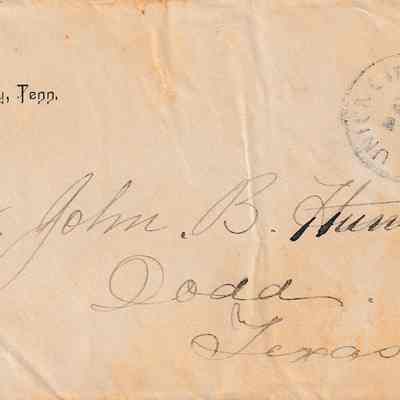 y, Tenn.
UNION CI
John. B. Hun
Dodd.
Texas